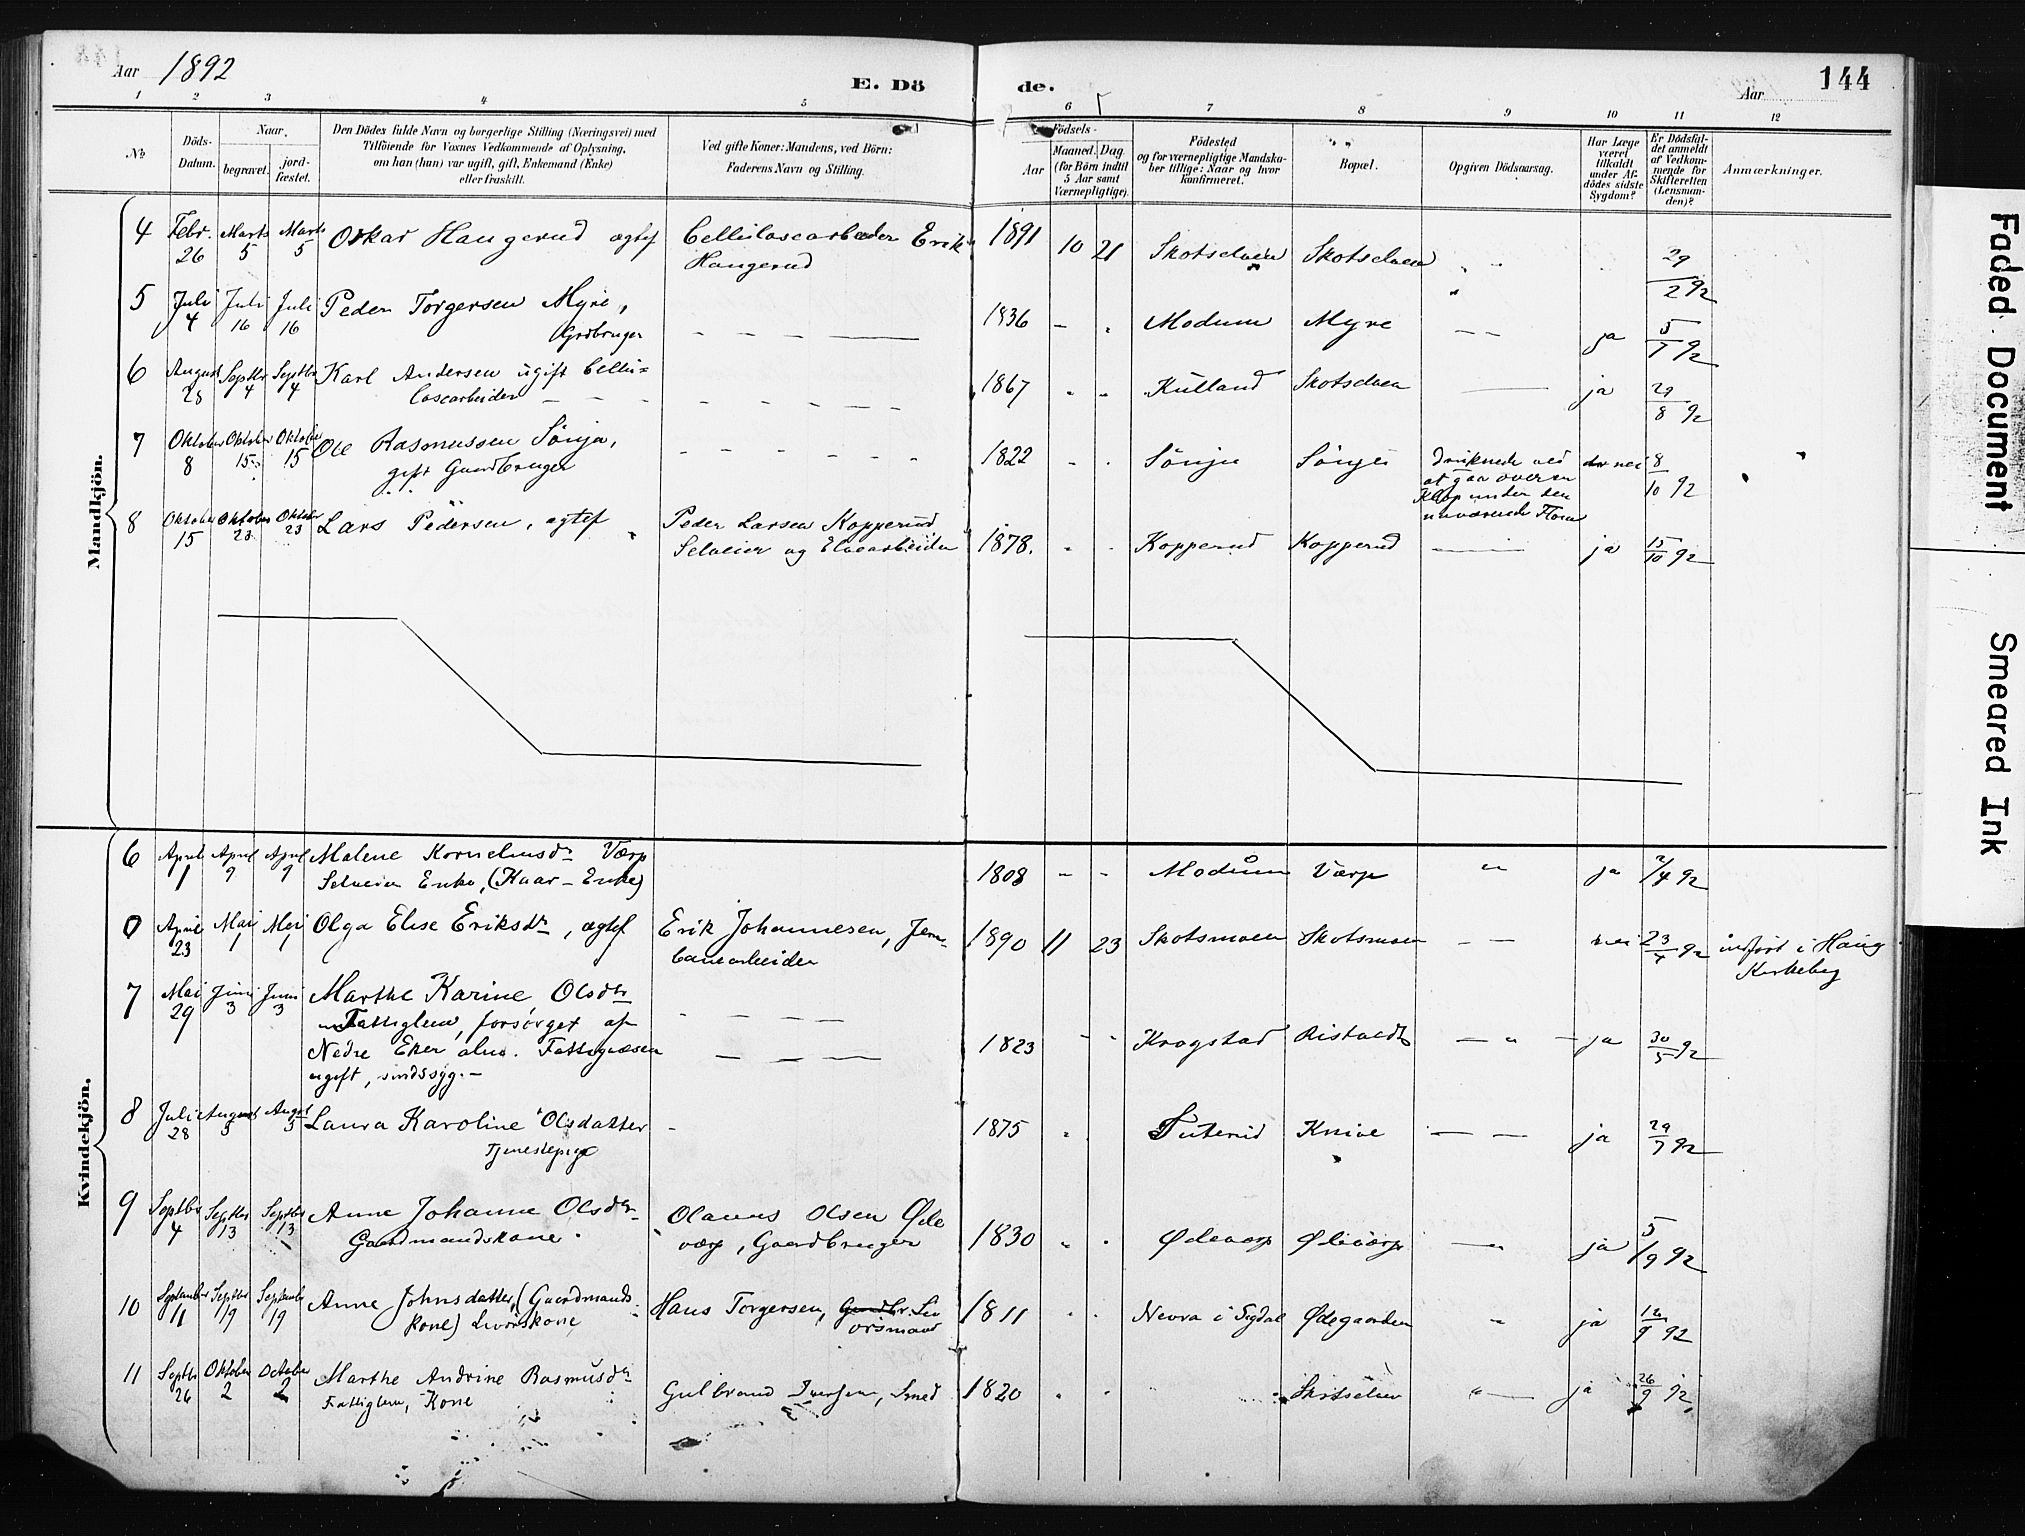 Aar 1892
E. Dö
de.
Aar
144
1 2 3 4 5 6 7 8 9 10 11 12
No
Döds-Datum.
Naar
begravet.
jord-fæstet.
Den Dödes fulde Navn og borgerlige Stilling (Næringsvei) med
Tilföiende for Voxnes Vedkommende af Oplysning,
om han (hun) var ugift, gift, Enkemand (Enke)
eller fraskilt.
Ved gifte Koner: Mandens, ved Börn:
Faderens Navn og Stilling.
Födsels-
Aar
Maaned. Dag.
(for Börn indtil
5 Aar samt
Værnepligtige).
Födested
og for værnepligtige Mandska-
ber tillige: Naar og hvor
konfirmeret.
Bopæl.
Opgiven Dödsaarsag.
Har Læge
været
tilkaldt
under Af-
dödes sidste
Sygdom?
Er Dödsfal-
det anmeldt
af Vedkom-
mende for
Skifteretten
(Lensman-
den)?
Anmærkninger.
Mandkjön.
4 Febr. 26 Marts 5 Marts 5 Oskar Haugerud ægtef Cellulosearbeider Erik 1891 10 21 Skotselven Skotselven 29/2 92
Haugerud
5 Juli 4 Juli 16 Juli 16 Peder Torgersen Myre, 1836 Modum Myre ja 5/7 92
Grdbruger
6 August 28 Septbr 4 Septbr 4 Karl Andersen ugift Cellu= 1867 Kulland Skotselven ja 29/8 92
losearbeider
7 Oktober 8 Oktober 15 Oktober 15 Ole Rasmussen Sönju, 1822 Sönju Sönju druknede ved nei 8/10 92
gift Gaardbruger
at gaa over en
Klop under den
nuværende Flom
8 Oktober 15 Oktober 23 Oktober 23 Lars Pedersen, ægtef Peder Larsen Kopperud 1878. Kopperud Kopperud ja 15/10 92
Selveier og Elvearbeider
Kvindekjön.
6 April 1 April 9 April 9 Malene Kornelinsdr Værp 1808 Modum Værp " ja 2/4 92
Selveier Enke, (Kaar-Enke)
0 April 23 Mai 1 Mai 1 Olga Elise Eriksdtr, ægtef Erik Johannesen, Jern- 1890 11 23 Skotsmoen Skotsmoen nei 23/4 92 indført i Haug
banearbeider
Kirkebog
7 Mai 29 Juni 3 Juni 3 Marthe Karine Olsdtr
Fattiglem, forsörget af
Nedre Eker alm. Fattigvæsen 1823 Krogstad " ja 30/5 92
ugift, sindssyg.
8 Juli 28 August 5 August 5 Laura Karoline Olsdatter 1875 Knive ja 29/7 92
Tjenestepige
9 Septbr 4 Septbr 13 Septbr 13 Anne Johanne Olsdtr Olaus Olsen Øde 1830 Ødeværp Ødeværp ja 5/9 92
Gaardmandskone.
værp, Gaardbruger
10 September 11 Septbr 19 September 19 Anne Johnsdatter, (Gaardmands Hans Torgersen, Gaardbr. Liv 1811 Nevra i Sigdal Ødegaarden " ja 12/9 92
kone) Livörskone
örsmand
11 Septbr 26 Oktober 2 October 2 Marthe Andrine Rasmusdtr Gulbrand Iversen, Smed 1820 Skotselven " ja 26/9 92
Fattiglem, Kone
Faded Document
Smeared Ink